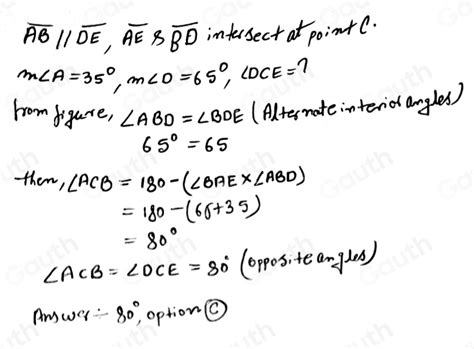 AB // DE, AE & BD intersect at point C.
m∠A = 35°, m∠D = 65°, ∠DCE = ?
from figure, ∠ABD = ∠BDE (Alternate interior angles)
65° = 65
then, ∠ACB = 180 - (∠BAE × ∠ABD)
= 180 - (65+35)
= 80°
∠ACB = ∠DCE = 80° (opposite angles)
Answer ÷ 80°, option Ⓒ